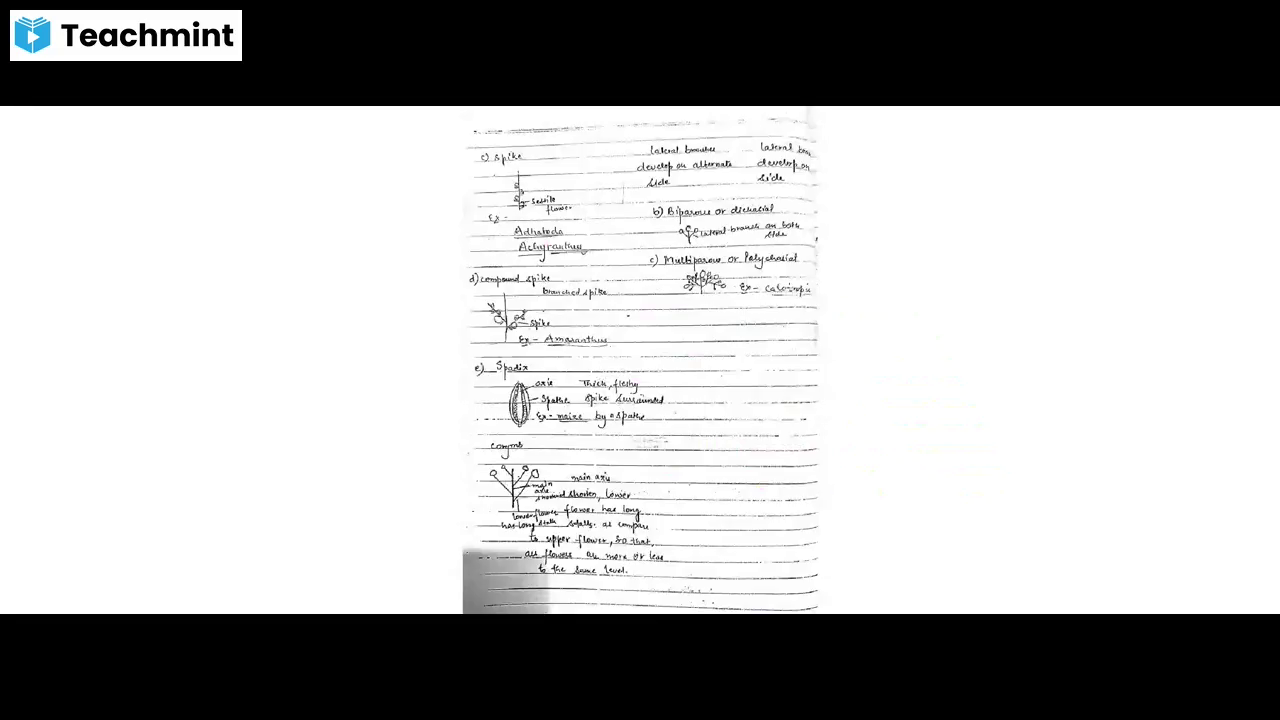 Teachmint
c) Spike
Sessile
flower
Ex -
Adhatoda
Achyranthus
d) compound spike
branched spike
Spike
Ex - Amaranthus
e) Spadix
axis Thick, fleshy
Spathe spike surrounded
Ex - maize by a spathe
Corymb
main axis
main
axis
shorten, lower
lower flower flower has long
has long stalk stalks. as compare
to upper flower, so that
all flowers are more or less
to the same level.
lateral branches
develop on alternate
side
lateral
develop on
side
b) Biparous or dichasial
lateral branch on both
side
c) Multiparous or Polychasial
Ex - Calotropis